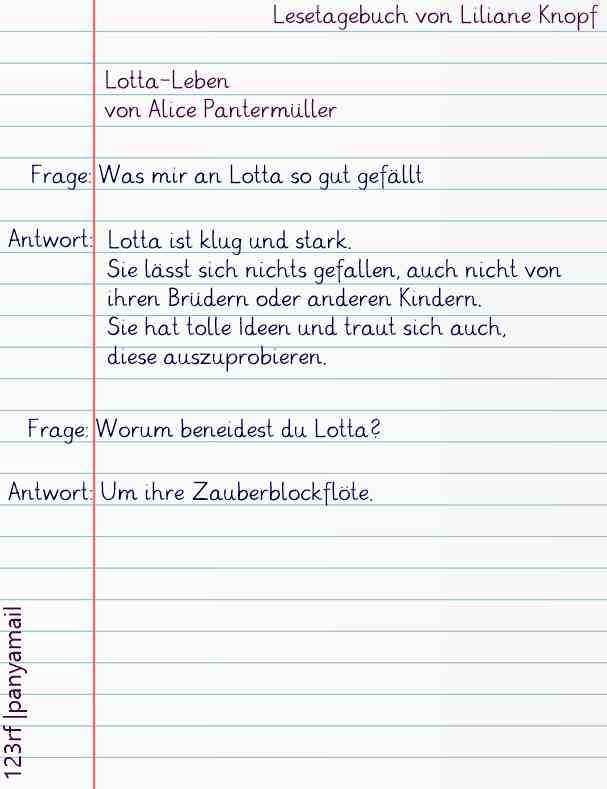 Lesetagebuch von Liliane Knopf
Lotta-Leben
von Alice Pantermüller
Frage: Was mir an Lotta so gut gefällt
Antwort: Lotta ist klug und stark.
Sie lässt sich nichts gefallen, auch nicht von
ihren Brüdern oder anderen Kindern.
Sie hat tolle Ideen und traut sich auch,
diese auszuprobieren.
Frage: Worum beneidest du Lotta?
Antwort: Um ihre Zauberblockflöte.
123rf |panyamail